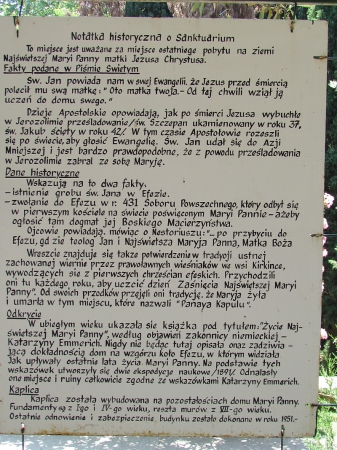 Notatka historyczna o Sanktuarium
To miejsce jest uważane za miejsce ostatniego pobytu na ziemi
Najświętszej Maryi Panny matki Jezusa Chrystusa.
Fakty podane w Piśmie Świętym
Św. Jan powiada nam w swej Ewangelii, że Jezus przed śmiercią
polecił mu swą matkę: "Oto matka twoja.- Od tej chwili wziął ją
uczeń do domu swego."
Dzieje Apostolskie opowiadają, jak po śmierci Jezusa wybuchłe
w Jerozolimie prześladowanie /św. Szczepan ukamienowany w roku 37,
św. Jakub ścięty w roku 42/ W tym czasie Apostołowie rozeszli
się po świecie, aby głosić Ewangelię. Św. Jan udał się do Azji
Mniejszej i jest bardzo prawdopodobne, że z powodu prześladowania
w Jerozolimie zabrał ze sobą Maryję.
Dane historyczne
Wskazują na to dwa fakty.
-istnienie grobu św. Jana w Efezie.
-zwołanie do Efezu w r. 431 Soboru Powszechnego, który odbył się
w pierwszym kościele na świecie poświęconym Maryi Pannie -ażeby
ogłosić tam dogmat jej Boskiego Macierzyństwa.
Ojcowie powiadają, mówiąc o Nestoriuszu: "... po przybyciu do
Efezu, gdzie teolog Jan i Najświętsza Maryja Panna, Matka Boża
Wreszcie znajduje się także potwierdzenie w tradycji ustnej
zachowanej wiernie przez prawosławnych wieśniaków we wsi Kirkince,
wywodzących się z pierwszych chrześcian efeskich. Przychodzili
oni tu każdego roku, aby uczcić dzień Zaśnięcia Najświętszej Maryi
Panny". Od swoich przodków przejęli oni tradycję, że Maryja żyła
i umarła w tym miejscu, które nazwali "Panaya Kapulu".
Odkrycie
W ubiegłym wieku ukazała się książka pod tytułem: "Życie Naj-
świętszej Maryi Panny", według objawień zakonnicy niemieckiej -
Katarzyny Emmerich. Nigdy nie będąc tutaj opisała ona z zadziwia-
jącą dokładnością dom na wzgórzu koło Efezu, w którym widziała
Jak upływały ostatnie lata życia Maryi Panny. Na podstawie tych
wskazówek utworzyły się dwie ekspedycje naukowe /1891/. Odnalazły
one miejsce i ruiny całkowicie zgodne ze wskazówkami Katarzyny Emmerich.
Kaplica
Kaplica została wybudowana na pozostałościach domu Maryi Panny.
Fundamenty są z I-go i IV-go wieku, reszta murów z VII-go wieku.
Ostatnie odnowienie i zabezpieczenie budynku zostało dokonane w roku 1951.-